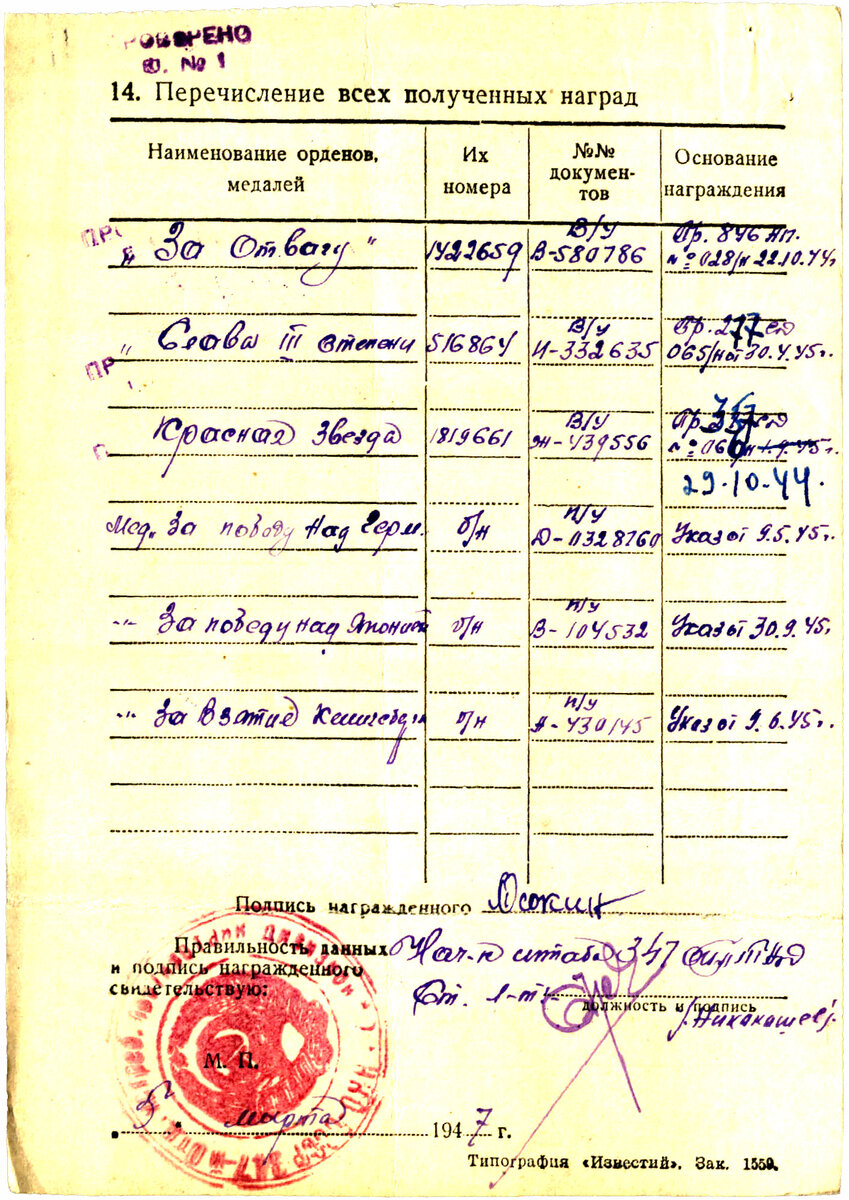 ПРОВЕРЕНО
Ф. № 1
14. Перечисление всех полученных наград
Наименование орденов, медалей
Их номера
№№ документов
Основание награждения
„За Отвагу"
1422659
В/у В-580786
Пр. 846 ап. №028/н 22.10.44г
„Слава III степени
516864
В/у И-332635
Пр. 277 сд 065/н от 30.4.45г.
Красная Звезда
1819661
В/у Ж-439556
Пр. №06 /н 1.9.45г.
29.10.44.
Мед. „За победу над Герм.
б/н
п/у Д-0328760
Указ от 9.5.45г.
-"- За победу над Японией
б/н
п/у В-104532
Указ от 30.9.45г.
-"- За взятие Кенигсберга
б/н
п/у А-430145
Указ от 9.6.45г.
Подпись награжденного
Правильность данных Нач-к штаба 347
и подпись награжденного
свидетельствую: Ст. л-т
должность и подпись
М. П.
5 марта 1947 г.
Типография «Известий». Зак. 1559.